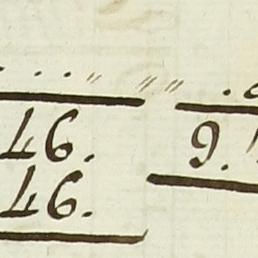 46. 9.
46.